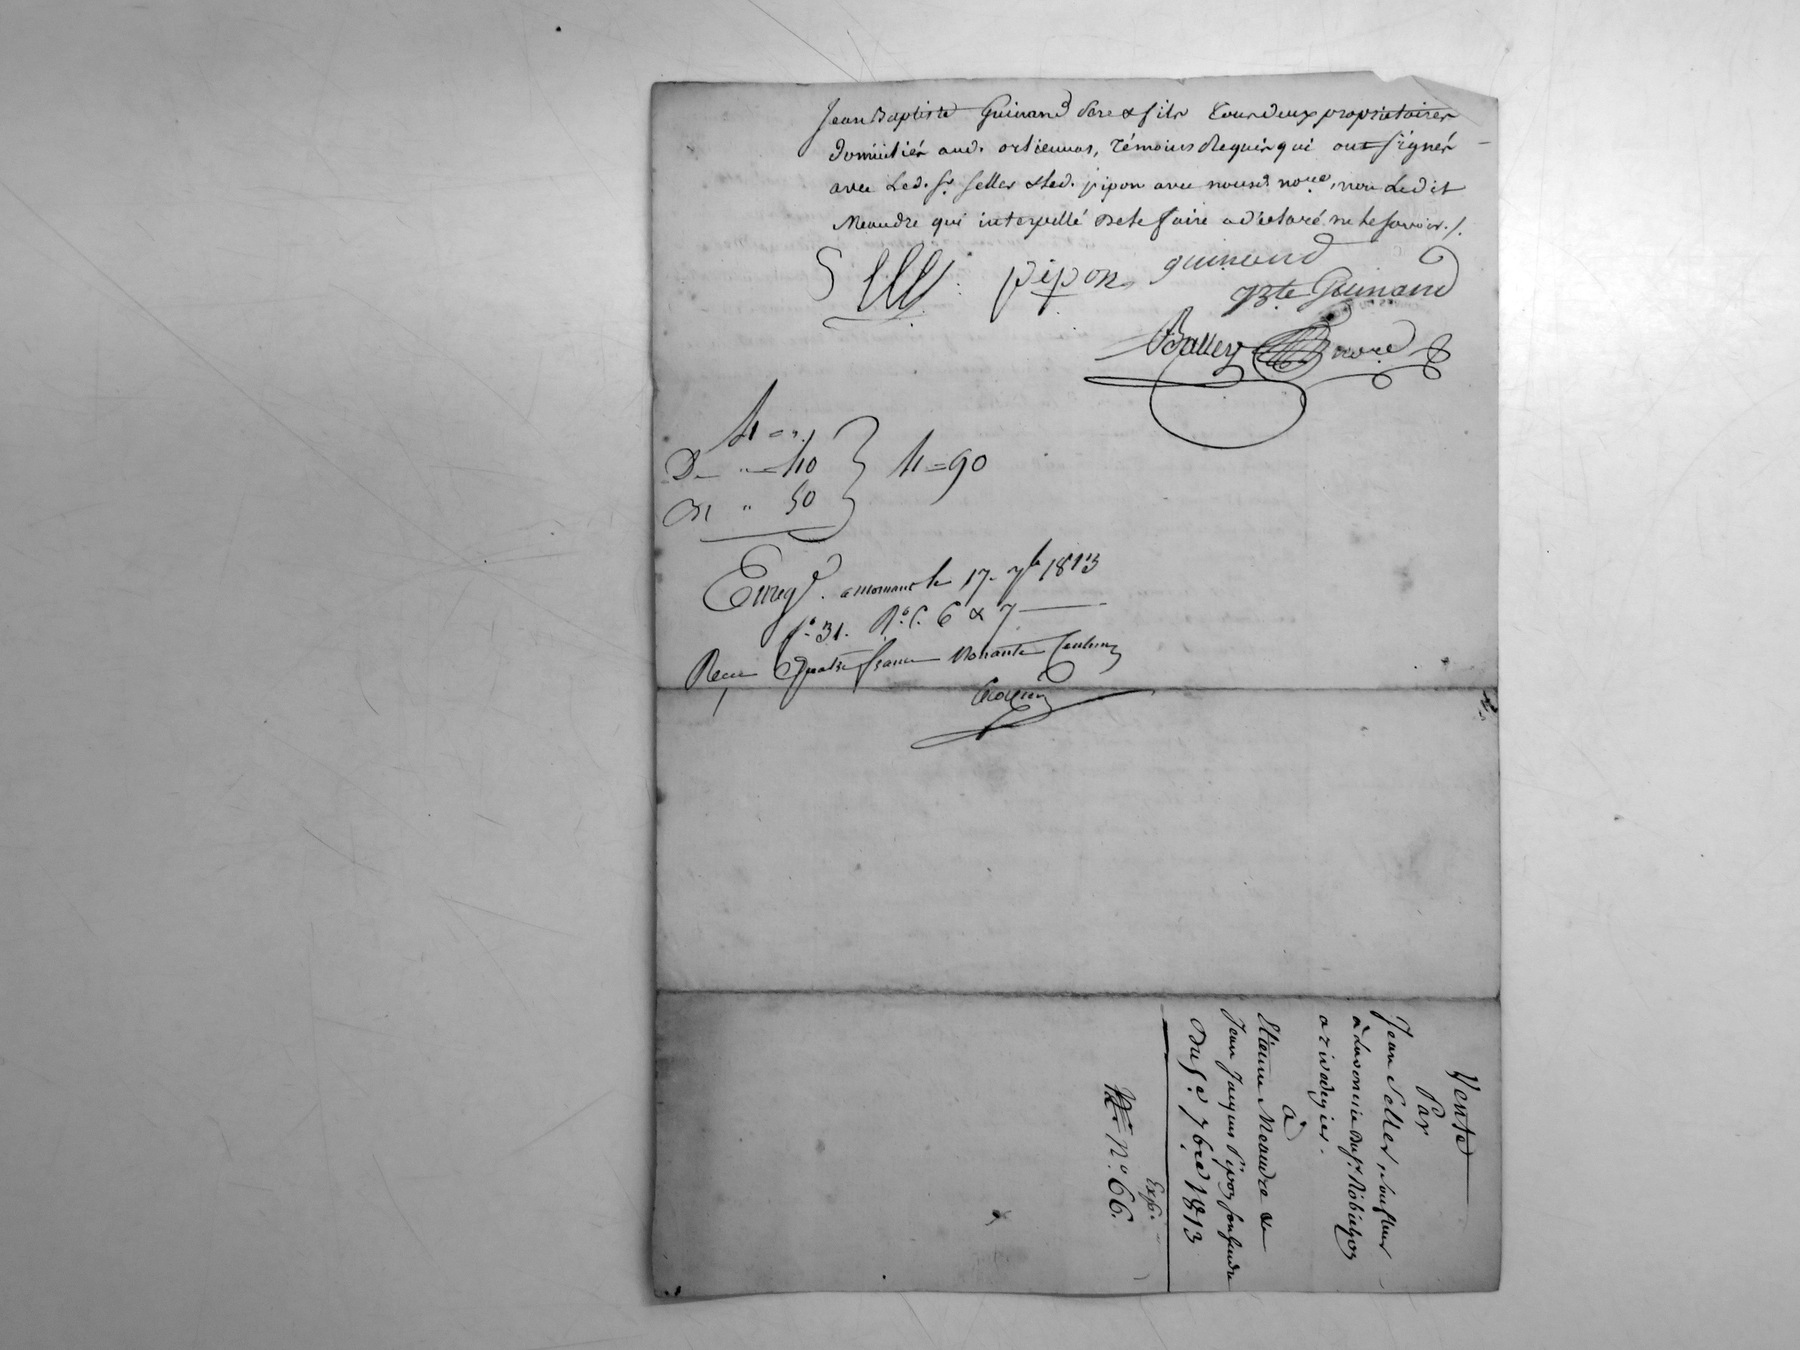 Jean Baptiste Guinand Pere & fils tous deux proprietaires
domiciliés aud. ortiennas, témoins Requis qui ont signés
avec Led. Sr. Selles & led. pipon avec nousd. nore, non Ledit
Meandre qui interpellé de le faire a déclaré ne le savoir./.
Selles pipon guinand
JBte Guinand
Balley nore
4 = ".
D— " = 40 4 = 90
" 50
Enregé. a mornant le 17. 7b 1813
fo. 31. Ro. C. 6 & 7
Recu Quatre francs Nonante Centimes
Vente
Par
Jean Selles, souffleur
à la verrerie du Sr. Robichon
a rivedegier.
à
Etienne Meandre &
Jean Jaques Pipon son gendre
Du 7bre 1813
Expé.
No. 66.